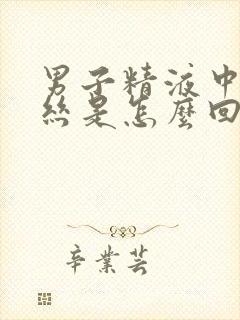 男子精液中
丝是怎麼回
辛業芸